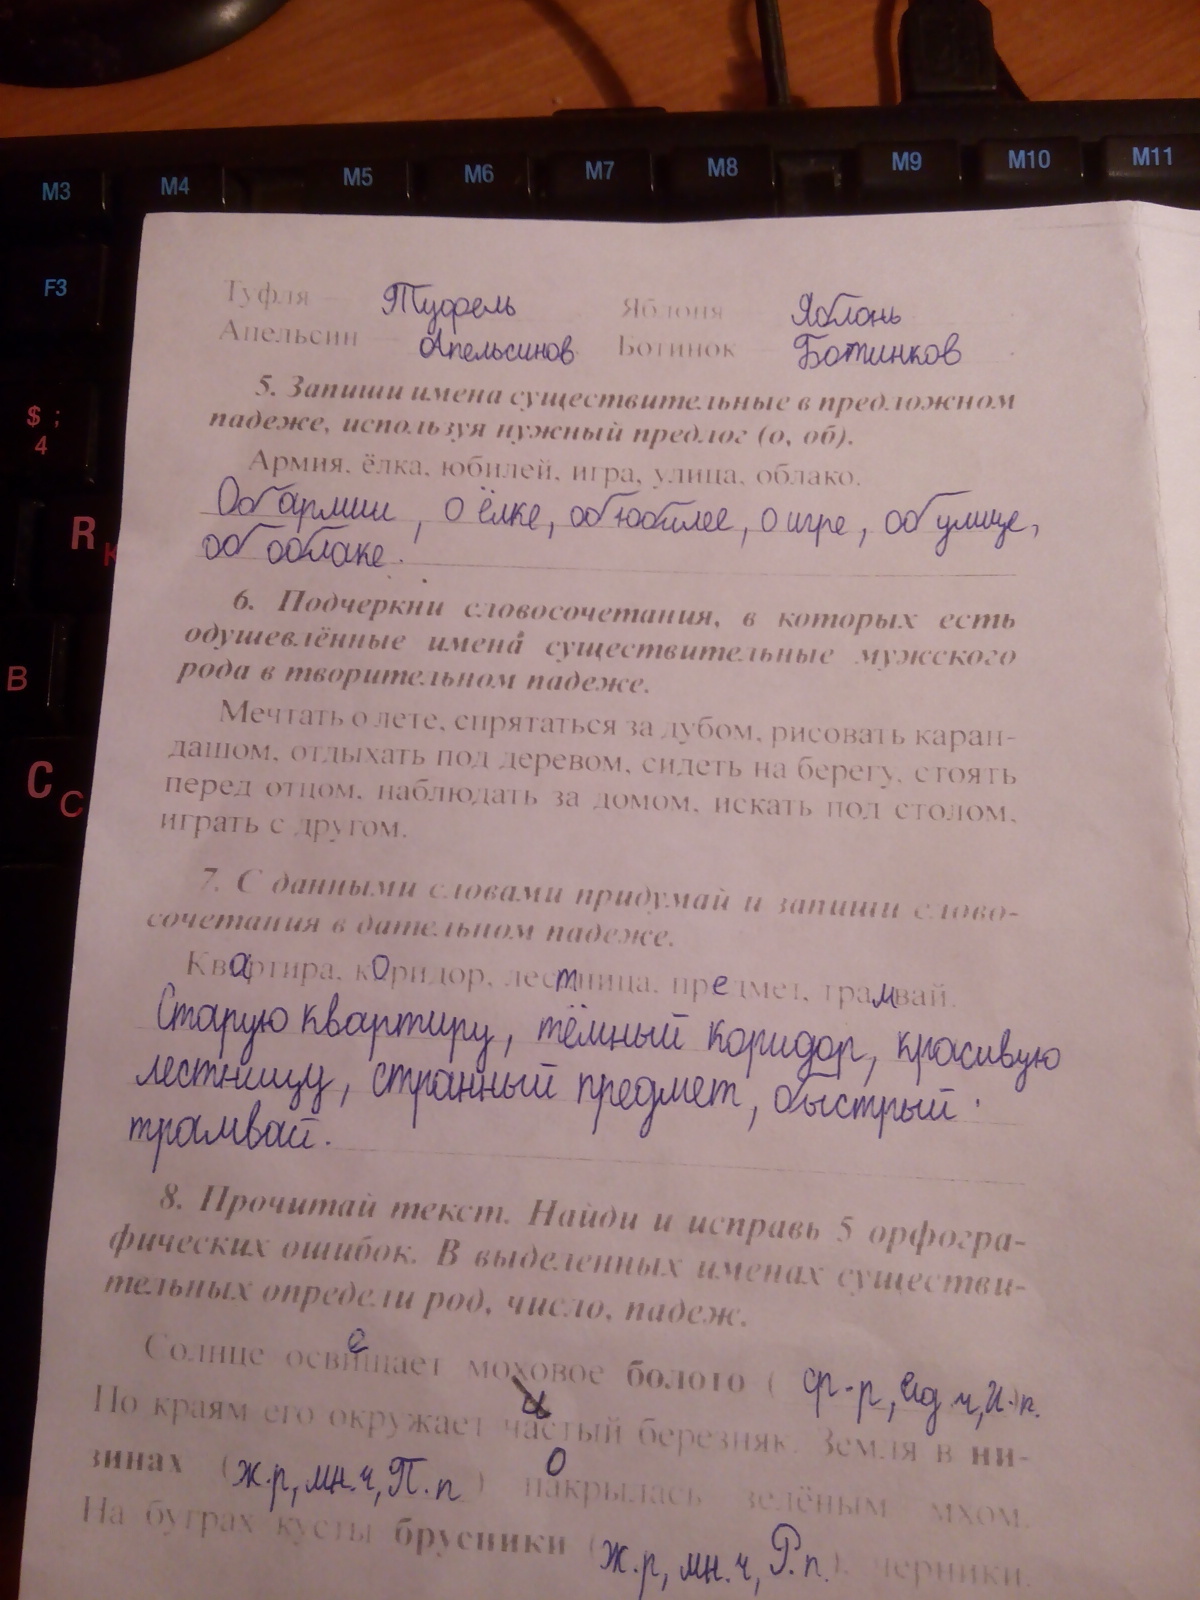 M3 M4 M5 M6 M7 M8 M9 M10 M11
F3
$ ;
4
R
К
B
C С
Туфля — Туфель Яблоня — Яблонь
Апельсин — Апельсинов Ботинок — Ботинков
5. Запиши имена существительные в предложном
падеже, используя нужный предлог (о, об).
Армия, ёлка, юбилей, игра, улица, облако.
Об армии, о ёлке, об юбилее, о игре, об улице,
об облаке.
6. Подчеркни словосочетания, в которых есть
одушевлённые имена существительные мужского
рода в творительном падеже.
Мечтать о лете, спрятаться за дубом, рисовать каран-
дашом, отдыхать под деревом, сидеть на берегу, стоять
перед отцом, наблюдать за домом, искать под столом,
играть с другом.
7. С данными словами придумай и запиши слово-
сочетания в дательном падеже.
Квартира, коридор, лестница, предмет, трамвай.
Старую квартиру, тёмный коридор, красивую
лестницу, странный предмет, быстрый
трамвай.
8. Прочитай текст. Найди и исправь 5 орфогра-
фических ошибок. В выделенных именах существи-
тельных определи род, число, падеж.
е
Солнце освишает моховое болото ( ср-р, ед ч, И.п.
и
По краям его окружает частый березняк. Земля в ни-
о
зинах (ж.р, мн.ч, П.п) накрылась зелёным мхом.
На буграх кусты брусники (ж.р, мн.ч, Р.п.), черники.